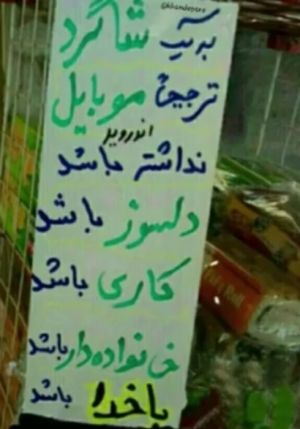 به یک شاگرد
ترجیحاً موبایل
اندروید
نداشته باشد
دلسوز باشد
کاری باشد
خانواده دار باشد
باخدا باشد